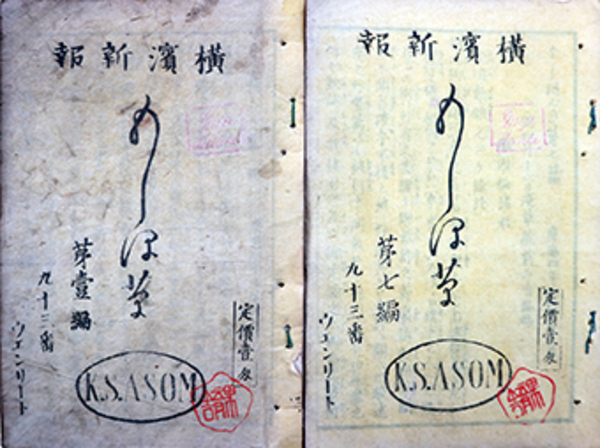 橫濱新報
もしほ草
苐壹編
九十三番
ウエンリート
定價壹
K.S.ASOM
橫濱新報
もしほ草
苐七編
九十三番
ウエンリート
定價壹
K.S.ASOM